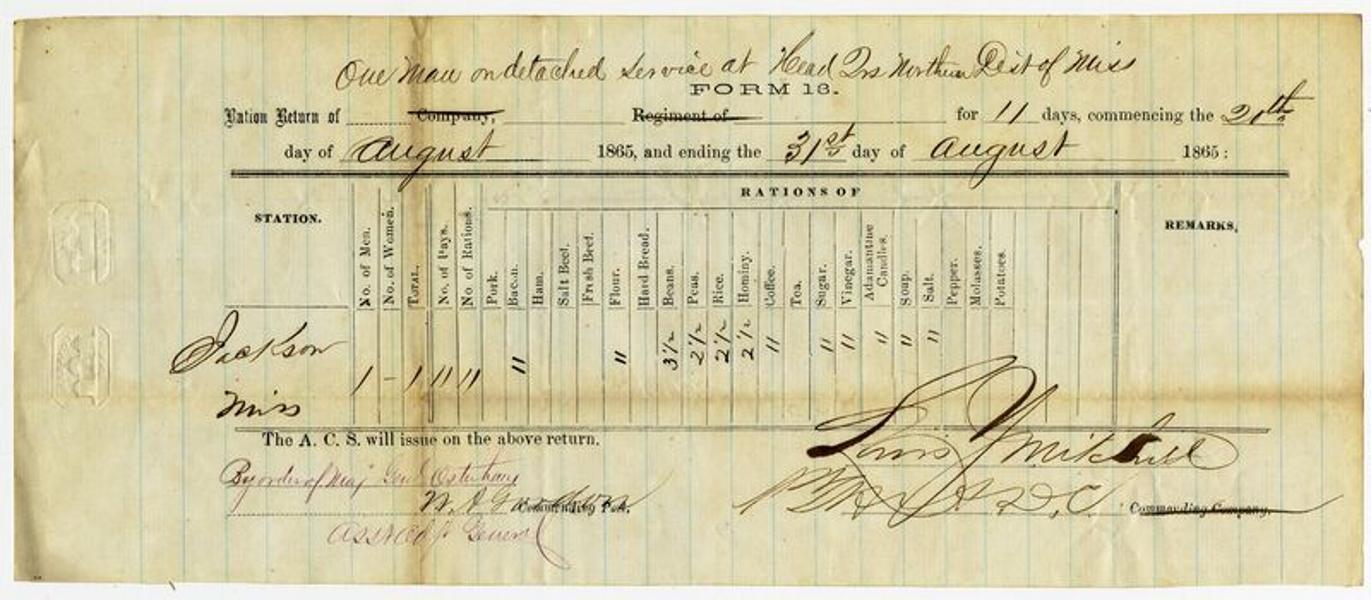 One Man on detached service at Head Qrs Northern Dist of Miss
FORM 13.
Ration Return of Company, Regiment of for 11 days, commencing the 20th
day of August 1865, and ending the 31st day of August 1865:
RATIONS OF
STATION. No. of Men. No. of Women. TOTAL. No. of Days. No. of Rations. Pork. Bacon. Ham. Salt Beef. Fresh Beef. Flour. Hard Bread. Beans. Peas. Rice. Hominy. Coffee. Tea. Sugar. Vinegar. Adamantine Candles. Soap. Salt. Pepper. Molasses. Potatoes. REMARKS.
Jackson
Miss 1 - 1 11 11 11 11 3½ 2½ 2½ 2½ 11 11 11 11 11 11
The A. C. S. will issue on the above return.
Louis Mitchell
By order of Maj Genl Osterhaus
W. A. Commanding Post.
A. D. C. Commanding Company.
Asst Adjt General